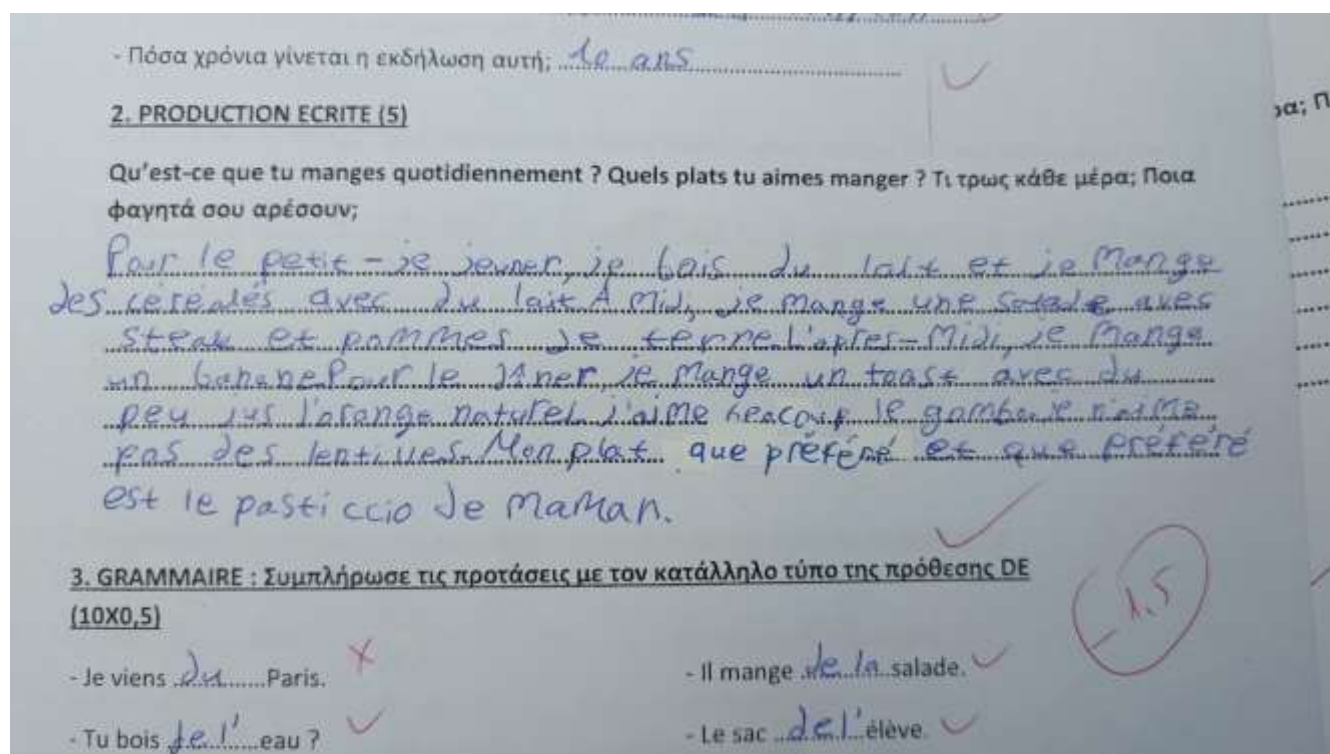 - Πόσα χρόνια γίνεται η εκδήλωση αυτή; 10 ans
2. PRODUCTION ECRITE (5)
ρα; Π
Qu'est-ce que tu manges quotidiennement ? Quels plats tu aimes manger ? Τι τρως κάθε μέρα; Ποια
φαγητά σου αρέσουν;
Pour le petit-de jeuner, je bois du lait et je mange
des céréales avec du lait. A midi, je mange une salade aves
steak et pommes de terre. L'apres-midi, je mange
un banane. Pour le dîner, je mange un toast avec du
peu jus l'orange naturel. J'aime beacoup le gamba. je n'aime
pas des lentilles. Mon plat que préféré et que préféré
est le pasticcio de maman.
3. GRAMMAIRE : Συμπλήρωσε τις προτάσεις με τον κατάλληλο τύπο της πρόθεσης DE
(10X0,5)
-1,5
- Je viens du Paris.
- Il mange de la salade.
- Tu bois de l' eau ?
- Le sac de l' élève.